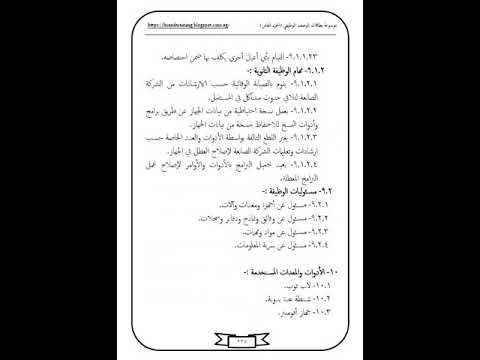 موسوعة بطاقات الوصف الوظيفي
٩.١.١.٢٣- القيام بأي أعمال أخرى يكلف بها ضمن اختصاصه.
٩.١.٢- مهام الوظيفة الثانوية :-
٩.١.٢.١- يقوم بالصيانة الوقائية حسب الإرشادات من الشركة
الصانعة لتلافي حدوث مشاكل في المستقبل.
٩.١.٢.٢- يعمل نسخة احتياطية من بيانات الجهاز عن طريق برامج
وأدوات النسخ للاحتفاظ بنسخة من بيانات الجهاز.
٩.١.٢.٣- يغير القطع التالفة بواسطة الأدوات والعدد الخاصة حسب
إرشادات وتعليمات الشركة الصانعة لإصلاح العطل في الجهاز.
٩.١.٢.٤- يعيد تحميل البرامج بالأدوات والأوامر لإصلاح عمل
البرامج المعطلة.
٩.٢- مسئوليات الوظيفة :-
٩.٢.١- مسئول عن أجهزة ومعدات وآلات.
٩.٢.٢- مسئول عن وثائق ونماذج ودفاتر وسجلات.
٩.٢.٣- مسئول عن مواد ومهمات.
٩.٢.٤- مسئول عن سرية المعلومات.
١٠- الأدوات والمعدات المستخدمة :-
١٠.١- لاب توب.
١٠.٢- شنطة عدة يدوية.
١٠.٣- جهاز أفوميتر.